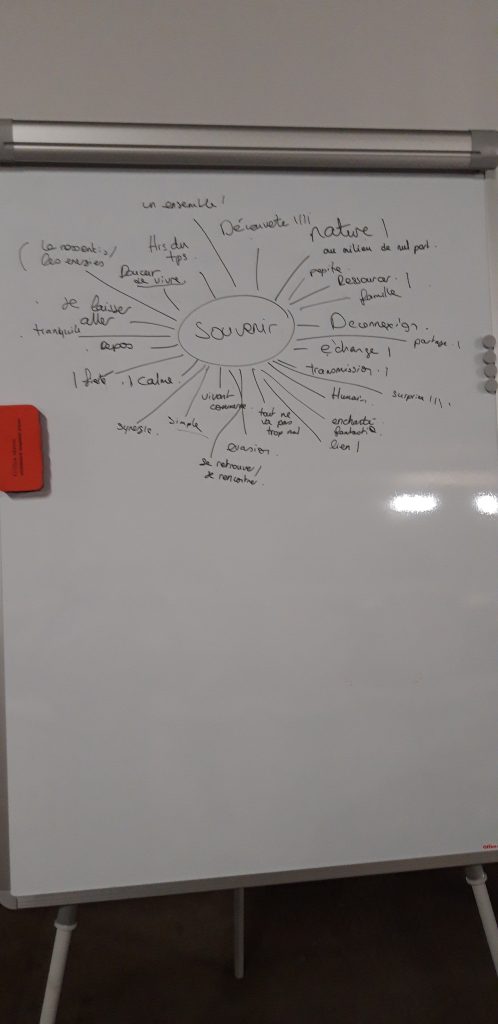 un ensemble !
Découverte !!!!
nature !
au milieu de nul part.
His du
tps.
Le ressenti /
les énergies
Douceur
de vivre.
pepite.
Ressourcer. !
famille
Je laisser
aller
tranquile
Souvenir
Déconnexion.
partage. !
Repos
échange !
transmission. !
! fierté.
! Calme.
vivant
comme
Humain.
surprise !!!.
synergie.
Simple
tout ne
va pas
trop mal
enchanté
fantastique
lien !
évasion
se retrouver /
se rencontrer.